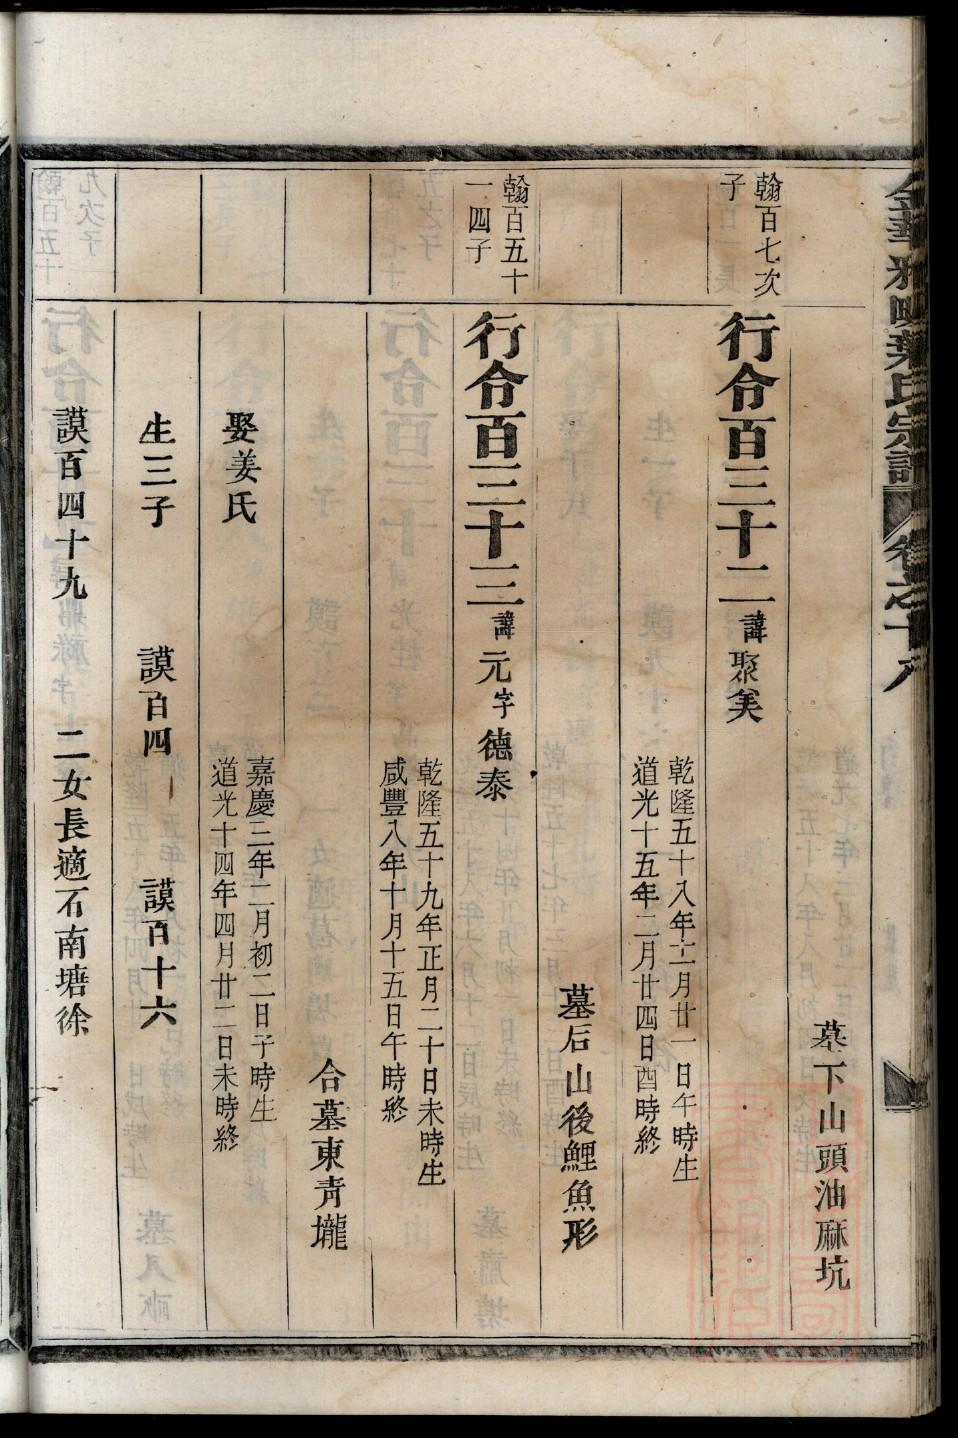 墓下山頭油麻坑
翰百七次
子
行令百三十二 諱聚美
乾隆五十八年十二月廿一日午時生
道光十五年二月廿四日酉時終
墓后山後鯉魚形
翰百五十
一四子
行令百三十三 諱元字德泰
乾隆五十九年正月二十日未時生
咸豐八年十月十五日午時終
合墓東青壠
娶姜氏
嘉慶二年二月初二日子時生
道光十四年四月廿二日未時終
生三子 謨百四 謨百十六
謨百四十九 二女長適石南塘徐